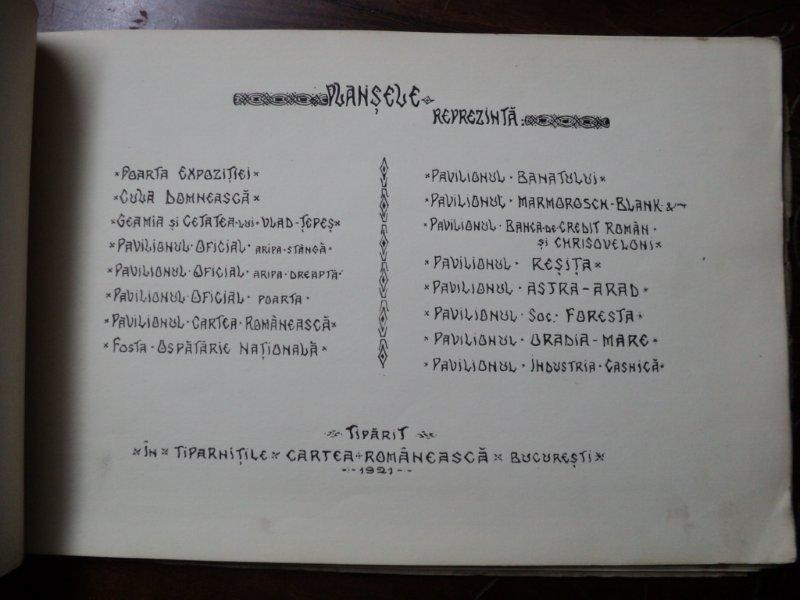 PLANȘELE
REPREZINTĂ:
×POARTA EXPOZIȚIEI×
×CULA DOMNEASCĂ×
×GEAMIA ȘI CETATEA·LUI·VLAD-ȚEPEȘ×
×PAVILIONUL·OFICIAL·ARIPA·STÂNGĂ·
×PAVILIONUL·OFICIAL·ARIPA·DREAPTĂ·
×PAVILIONUL·OFICIAL·POARTA·
×PAVILIONUL·CARTEA·ROMÂNEASCĂ×
×FOSTA·OSPĂTĂRIE NAȚIONALĂ×
×PAVILIONUL·BANATULUI×
×PAVILIONUL·MARMOROSCH-BLANK·&·
×PAVILIONUL·BANCA·DE·CREDIT ROMÂN·
ȘI CHRISOVELONI×
×PAVILIONUL·REȘIȚA×
×PAVILIONUL·ASTRA-ARAD×
×PAVILIONUL·SOC.·FORESTA·
×PAVILIONUL·ORADIA-MARE×
×PAVILIONUL·INDUSTRIA·CASNICĂ×
TIPĂRIT
×ÎN×TIPARNIȚILE×CARTEA+ROMÂNEASCĂ×BUCUREȘTI×
-·-1921-·-